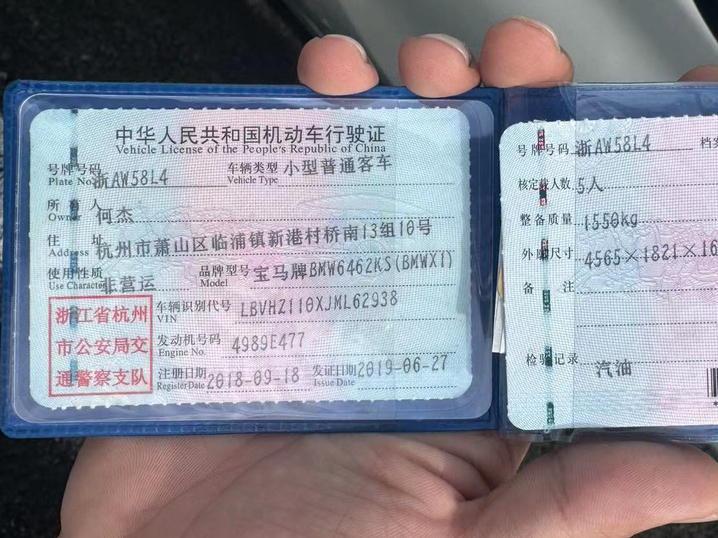 中华人民共和国机动车行驶证
Vehicle License of the People's Republic of China
号牌号码 浙AW58L4 车辆类型 小型普通客车
Plate No. Vehicle Type
所有人 何杰
Owner
住址 杭州市萧山区临浦镇新港村桥南13组10号
Address
使用性质 非营运 品牌型号 宝马牌BMW6462KS(BMWX1)
Use Character Model
浙江省杭州
市公安局交
通警察支队
车辆识别代号 LBVHZ110XJML62938
VIN
发动机号码 4989E477
Engine No.
注册日期 2018-09-18 发证日期 2019-06-27
Register Date Issue Date
号牌号码 浙AW58L4 档案
核定载人数 5人
整备质量 1550kg
外廓尺寸 4565×1821×16
备注
检验记录
汽油